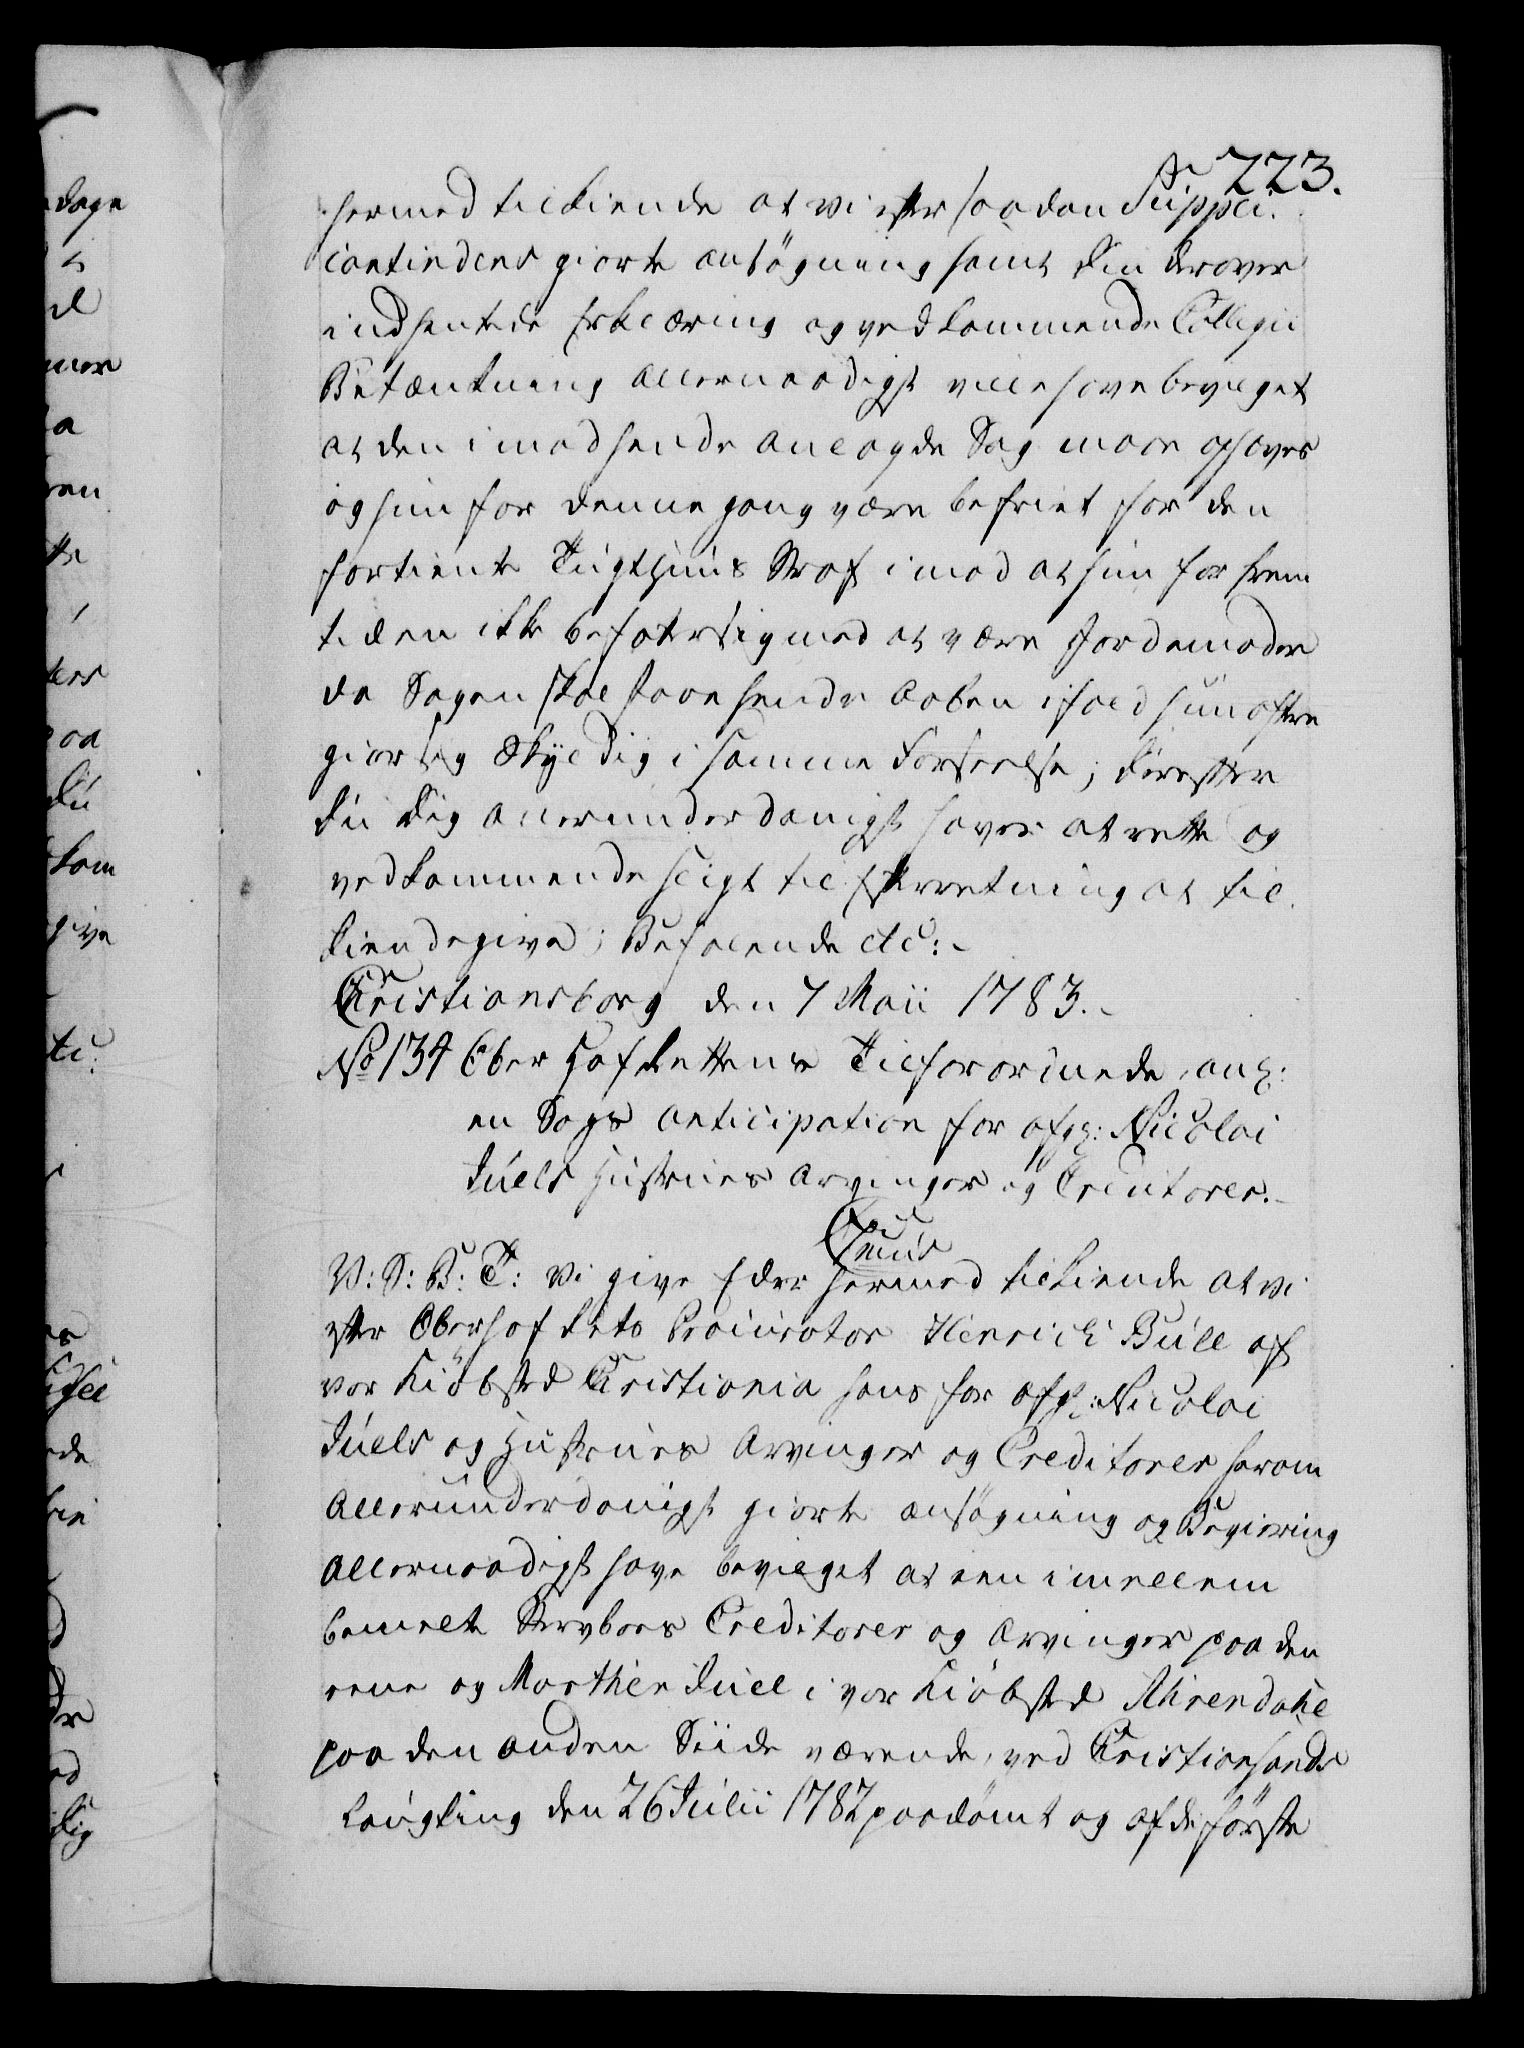 223.
hermed tilkiende at vi efter saadan Suppli-
cantindens giorte ansøgning samt din derover
indhentede Erklæring og vedkommende Collegii
Betænkning allernaadigst ville have bevilget
at den imod hende anlagde Sag maae ophæves
og hun for denne gang være befriet for den
fortiente Tugthuus Straf imod at hun for frem
tiden ikke befatter sig med at være Jordemoder
da Sagen skal staae hende aaben ifald hun oftere
giør sig skyldig i samme Forseelse; derefter
du dig allerunderdanigst haver at rette og
vedkommende sligt til Efterretning at til-
kiendegive; Befalende etc:
Christiansborg den 7 Maii 1783.
No 134 Ober Hof Rettens Tilforordnede, anl:
en Sags Anticipation for afg: Nicolai
Juels Hustrues Arvinger og Creditorer.
V: S: B: T: Vi give Eder hermed tilkiende at vi
efter Oberhofrets Procurator Henrich Bull af
vor Kiøbsted Christiania hans for afg: Nicolai
Juels og Hustrues Arvinger og Creditorer herom
allerunderdanigst giorte ansøgning og Begiering
allernaadigst have bevilget at een imellem
bemelte Stervboes Creditorer og Arvinger paa den
eene og Marthe Juel i vor Kiøbsted Ahrendahl
paa den anden Siide værende, ved Christiansands
Laugting den 26 Julii 1782 paadømt og af de første